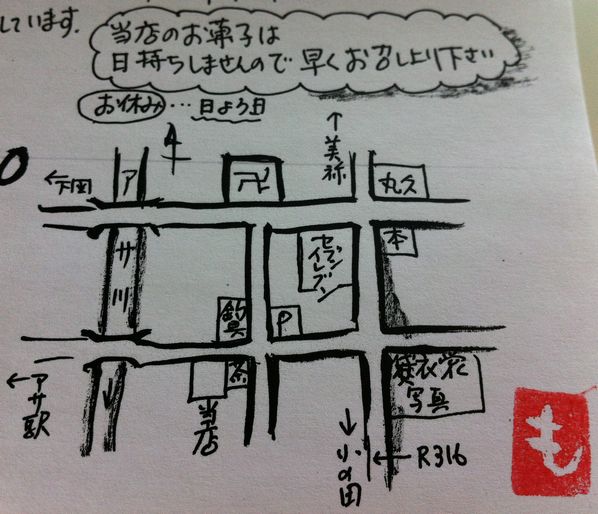 しています.
当店のお菓子は
日持ちしませんので早くお召し上り下さい
お休み…日よう日
↑美祢
←下関
ア
卍
丸久
サ
セブンイレブン
本
川
釣具
P
←アサ駅
茶
当店
貸衣裳
写真
↓小の田
←R316
も